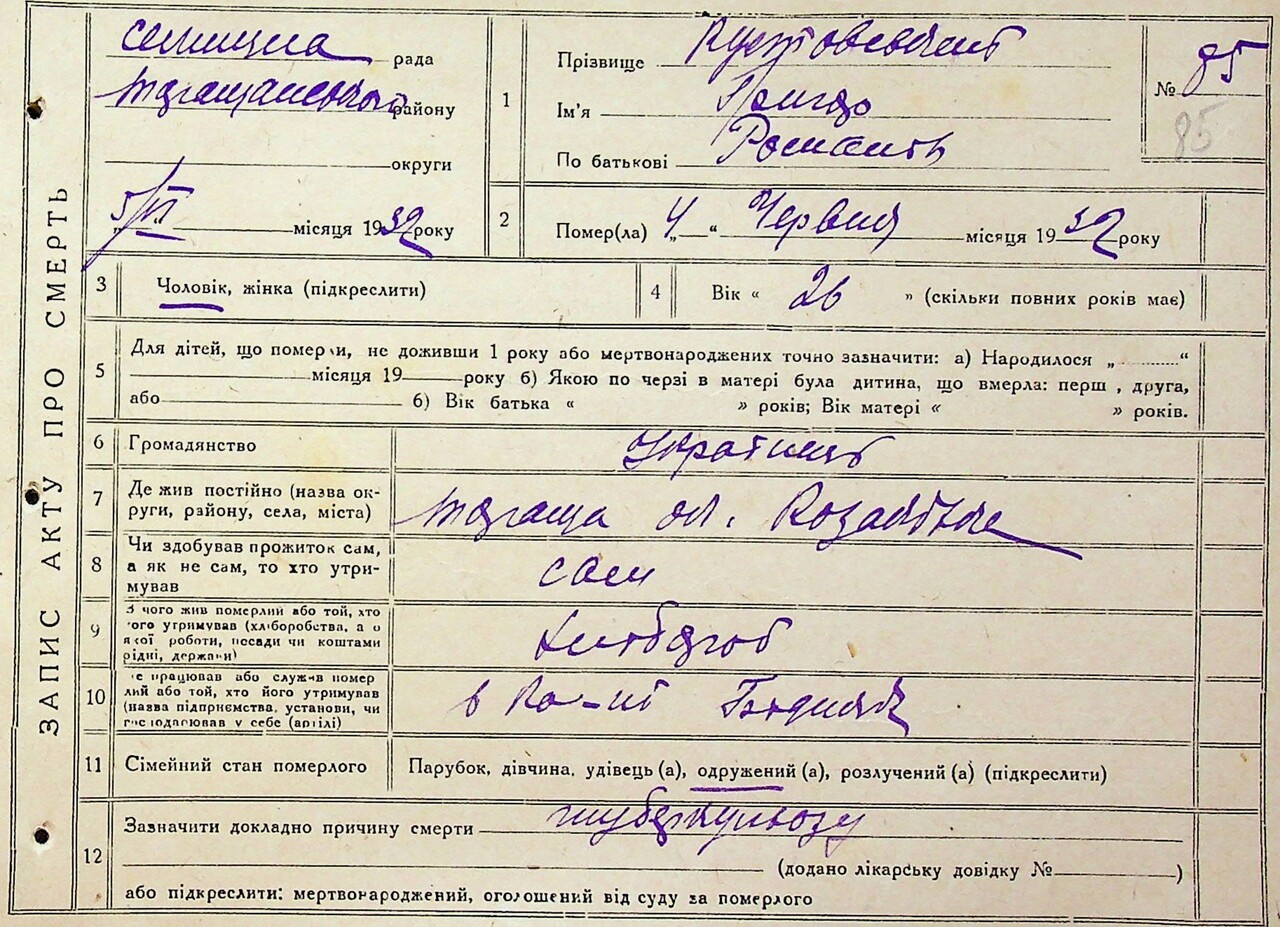 ЗАПИС АКТУ ПРО СМЕРТЬ
селищна рада
району
округи
5/VI місяця 1932 року
1
Прізвище
Ім'я Грицко
По батькові
№ 85
85
2
Помер(ла) „ 4 “ Червня місяця 1932 року
3
Чоловік, жінка (підкреслити)
4
Вік « 26 » (скільки повних років має)
5
Для дітей, що померли, не доживши 1 року або мертвонароджених точно зазначити: а) Народилося „ “
місяця 19 року б) Якою по черзі в матері була дитина, що вмерла: перш , друга,
або 6) Вік батька « » років; Вік матері « » років.
6
Громадянство
Українець
7
Де жив постійно (назва ок-
руги, району, села, міста)
8
Чи здобував прожиток сам,
а як не сам, то хто утри-
мував
сам
9
З чого жив померлий або той, хто
ого утримував (хліборобства, а о
якої роботи, посади чи коштами
рідні, держави)
Хлібороб
10
е працював або служив помер
лий або той, хто його утримував
(назва підприємства, установи, чи
господарював у себе (артілі)
в
11
Сімейний стан померлого
Парубок, дівчина, удівець (а), одружений (а), розлучений (а) (підкреслити)
12
Зазначити докладно причину смерти туберкульозу
(додано лікарську довідку № )
або підкреслити: мертвонароджений, оголошений від суду за померлого